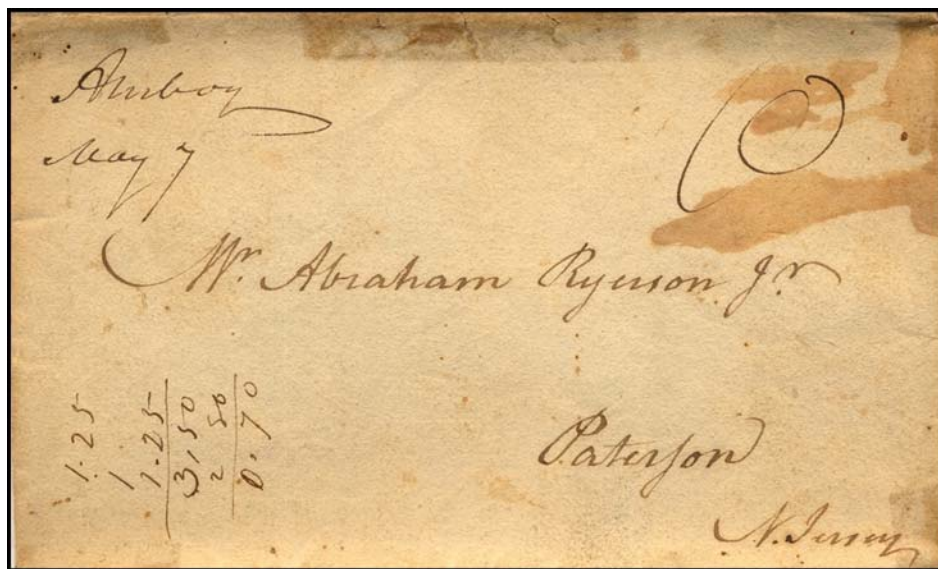 Amboy
May 7
10
Mr. Abraham Ryerson Jr.
Paterson
N. Jersey
1.25
1
1.25
3,50
2 50
0.70